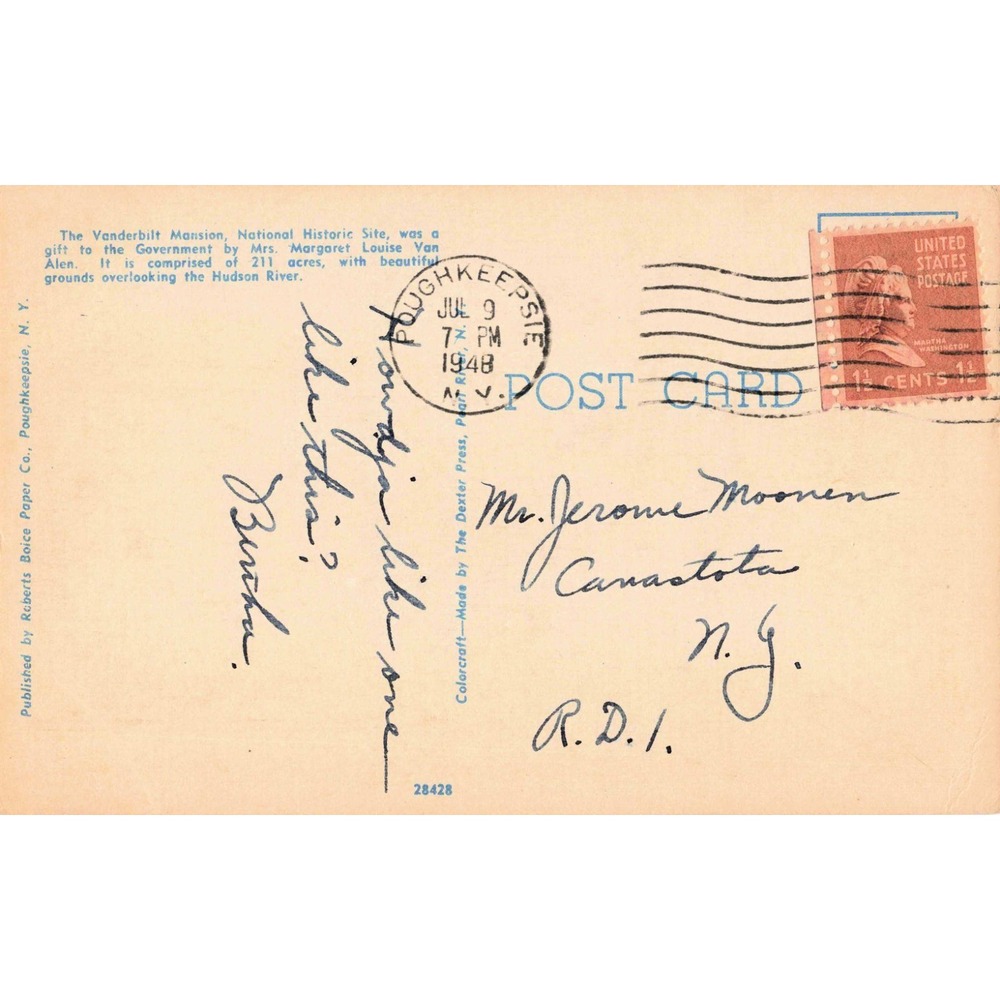 The Vanderbilt Mansion, National Historic Site, was a
gift to the Government by Mrs. Margaret Louise Van
Alen. It is comprised of 211 acres, with beautiful
grounds overlooking the Hudson River.
Published by Roberts Boice Paper Co., Poughkeepsie, N. Y.
Howdja like one
like this?
Bertha.
28428
Colorcraft—Made by The Dexter Press, Pearl River, N.
POUGHKEEPSIE
JUL 9
7 PM
1948
N.Y.
UNITED
STATES
POSTAGE
MARTHA
WASHINGTON
1½ CENTS 1½
POST CARD
Mr. Jerome Moonen
Canastota
N. Y.
R. D. 1.